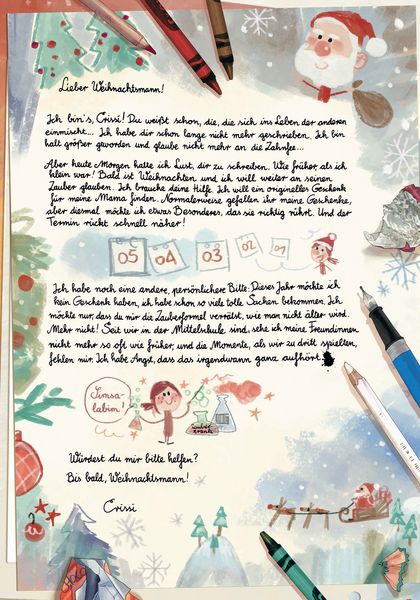 Lieber Weihnachtsmann!
Ich bin's, Crissi! Du weißt schon, die, die sich ins Leben der anderen
einmischt... Ich habe dir schon lange nicht mehr geschrieben. Ich bin
halt größer geworden und glaube nicht mehr an die Zahnfee...
Aber heute Morgen hatte ich Lust, dir zu schreiben. Wie früher, als ich
klein war! Bald ist Weihnachten und ich will weiter an seinen
Zauber glauben. Ich brauche deine Hilfe. Ich will ein originelles Geschenk
für meine Mama finden. Normalerweise gefallen ihr meine Geschenke,
aber diesmal möchte ich etwas Besonderes, das sie richtig rührt. Und der
Termin rückt schnell näher!
05 04 03 02 01
Ich habe noch eine andere, persönlichere Bitte: Dieses Jahr möchte ich
kein Geschenk haben, ich habe schon so viele tolle Sachen bekommen. Ich
möchte nur, dass du mir die Zauberformel verrätst, wie man nicht älter wird.
Mehr nicht! Seit wir in der Mittelschule sind, sehe ich meine Freundinnen
nicht mehr so oft wie früher, und die Momente, als wir zu dritt spielten,
fehlen mir. Ich habe Angst, dass das irgendwann ganz aufhört.
Simsa-
labim!
Zauber
trank
Würdest du mir bitte helfen?
Bis bald, Weihnachtsmann!
Crissi